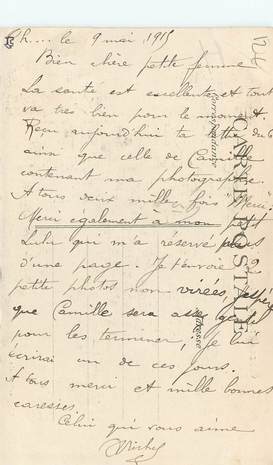 Ch.... le 9 mai 1915
Bien chère petite femme
La santé est excellente et tout
va très bien pour le moment.
Reçu aujourd'hui ta lettre du 6
ainsi que celle de Camille
contenant ma photographie.
A tous deux mille fois Merci
Merci également à mon petit
Lulu qui m'a réservé plus
d'une page. Je t'envoie 2
petite photos non virées, j'espère
que Camille sera assez
pour les terminer, je lui
écrirai un de ces jours.
A tous merci et mille bonnes
caresses.
Celui qui vous aime
Michel
CARTE POSTALE
Correspondance
Adresse